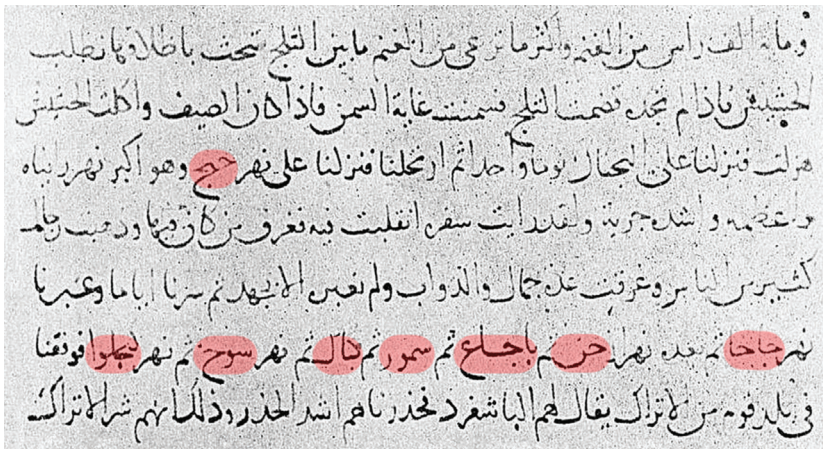 وماية الف راس من الغنم واكثر ما ترعى من الغنم ما بين الثلج تبحث باظلافها تطلب
الحشيش فاذا لم تجده قضمت الثلج فسمنت غاية السمن فاذا كان الصيف واكلت الحشيش
هزلت فنزلنا على البجناك يوما واحدا ثم ارتحلنا فنزلنا على نهر جيخ وهو اكبر نهر رايناه
واعظمه واشده جرية ولقد رايت سفرة انقلبت فيه فغرق من كان فيها وذهبت رجالة
كثير من الناس وغرقت عدة جمال والدواب ولم نعبره الا بجهد ثم سرنا اياما وعبرنا
نهر جاخا ثم بعده نهر ثم باجاع ثم سمور ثم كنال ثم نهر سوح ثم نهر فوقفنا
في بلد قوم من الاتراك يقال لهم الباشغرد فحذرناهم اشد الحذر وذلك انهم شر الاتراك